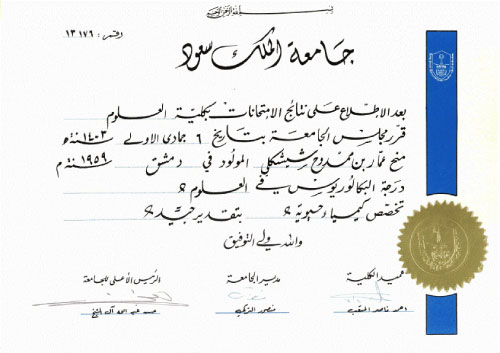 بسم الله الرحمن الرحيم
رقم: ١٣١٧٦
جامعة الملك سعود
بعد الاطلاع على نتائج الامتحانات بكلية العلوم
قرر مجلس الجامعة بتاريخ ٦ جمادى الاولى سنة ١٤٠٣ هـ
منح عمار بن ممدوح شيشكلي المولود في دمشق سنة ١٩٥٩ م
درجة البكالوريوس في العلوم
تخصص كيمياء وحيوية بتقدير جيد
والله ولي التوفيق
عميد الكلية
مدير الجامعة
الرئيس الأعلى للجامعة
احمد ناصر
منصور التركي
حسن عبد الله آل الشيخ